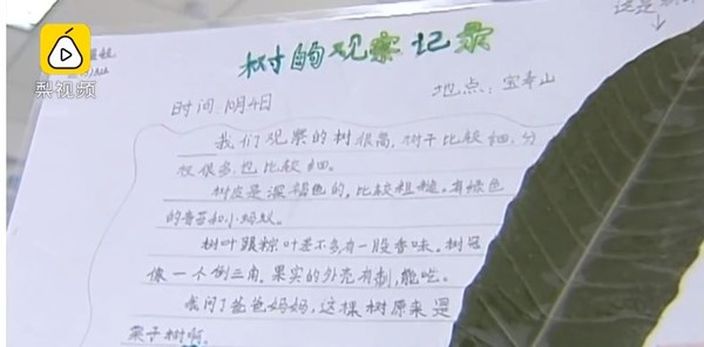 梨视频
树的观察记录
这是
时间:10月4日
地点:宝寿山
我们观察的树很高,树干比较细,分
枝很多,也比较细。
树皮是深褐色的,比较粗糙。有绿色
的青苔和小蚂蚁。
树叶跟粽叶差不多,有一股香味。树冠
像一个倒三角。果实的外壳有刺,能吃。
我问了爸爸妈妈,这棵树原来是
栗子树啊。